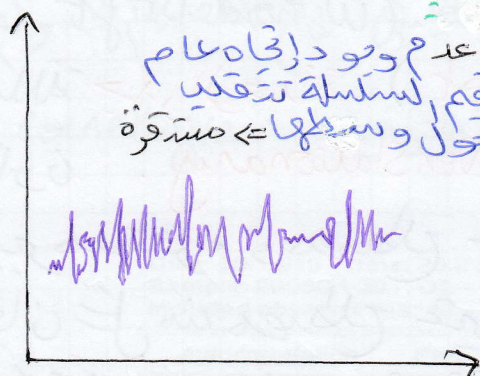 عدم وجود إتجاه عام
قيم السلسلة تتقلب
حول وسطها => مستقرة